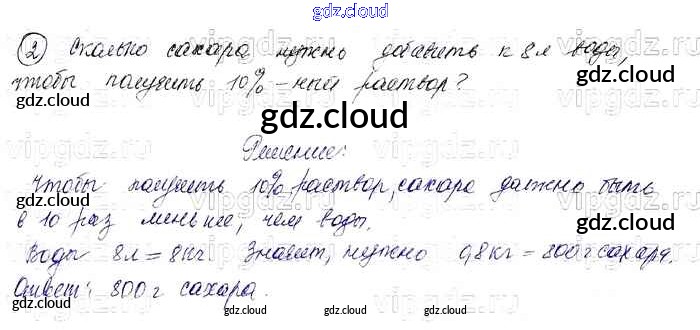 gdz.cloud
② Сколько сахара нужно добавить к 8л воды,
чтобы получить 10%-ный раствор?
gdz.cloud gdz.cloud
gdz.cloud
Решение:
Чтобы получить 10% раствор, сахара должно быть
в 10 раз меньше, чем воды.
gdz.cloud gdz.cloud
Воды 8л = 8кг Значит, нужно 0,8кг = 800г сахара.
Ответ: 800г сахара.
gdz.cloud
vipgdz vipgdz vipgdz